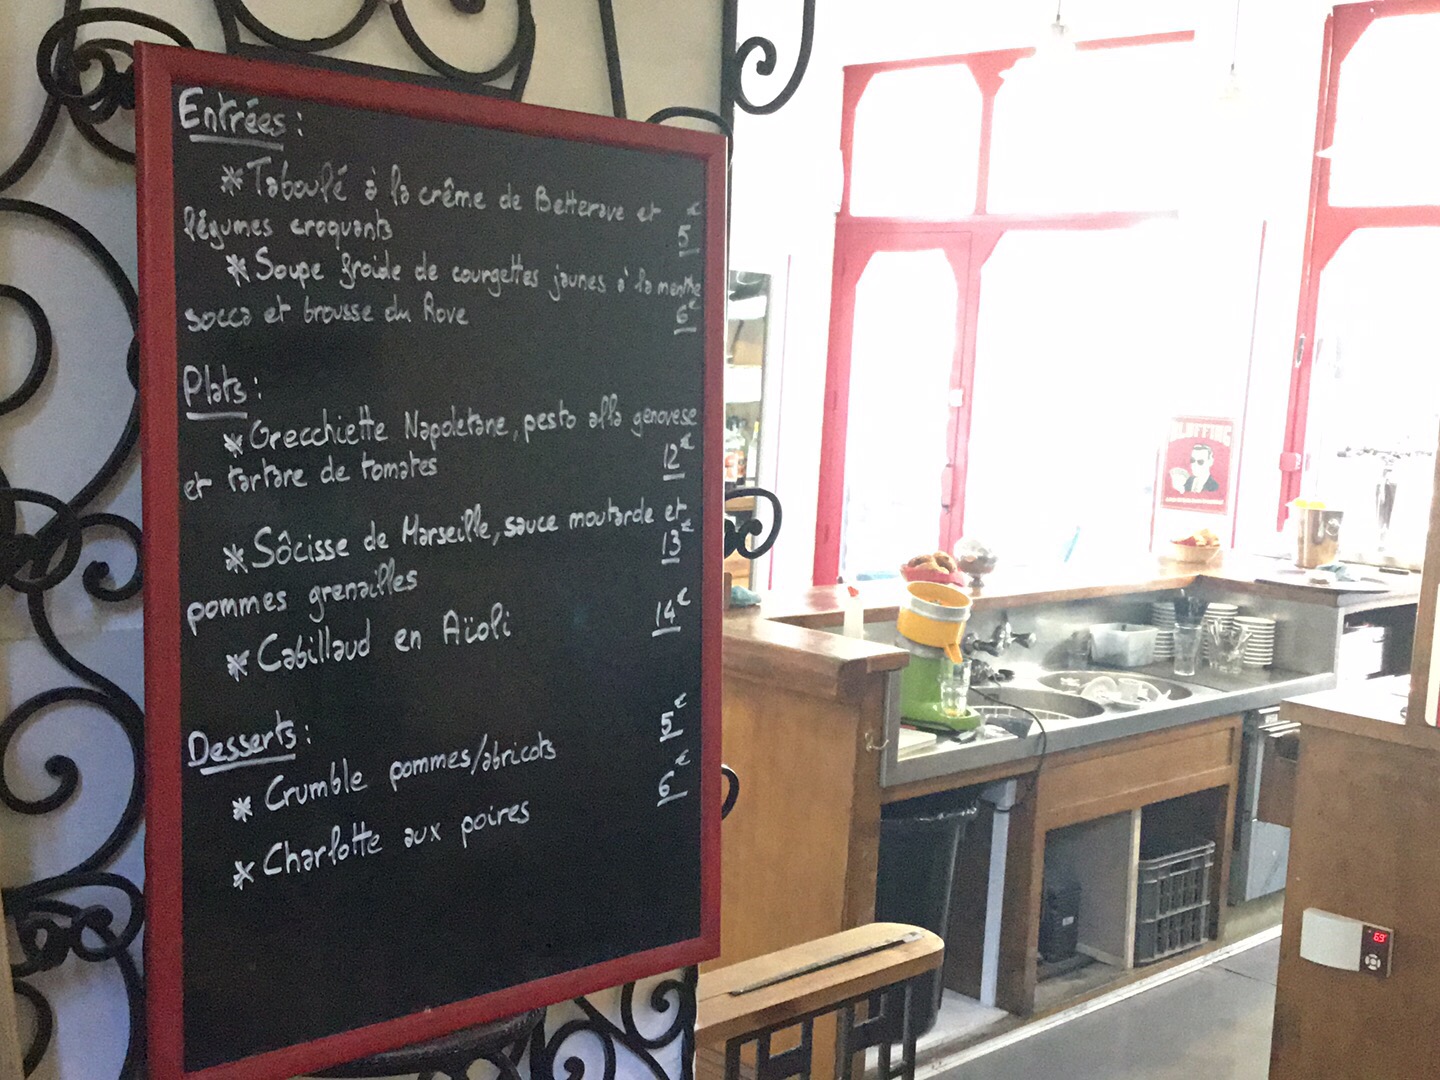 Entrées :
* Taboulé à la crême de Betterave et
légumes croquants 5€
* Soupe froide de courgettes jaunes à la menthe
socca et brousse du Rove 6€
Plats :
* Orecchiette Napoletane, pesto alla genovese
et tartare de tomates 12€
* Sôcisse de Marseille, sauce moutarde et
pommes grenailles 13€
* Cabillaud en Aïoli 14€
Desserts :
* Crumble pommes/abricots 5€
* Charlotte aux poires 6€